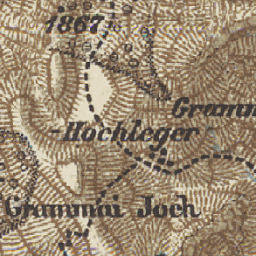 1867
Gramm
-Hochleger
Grammai Joch